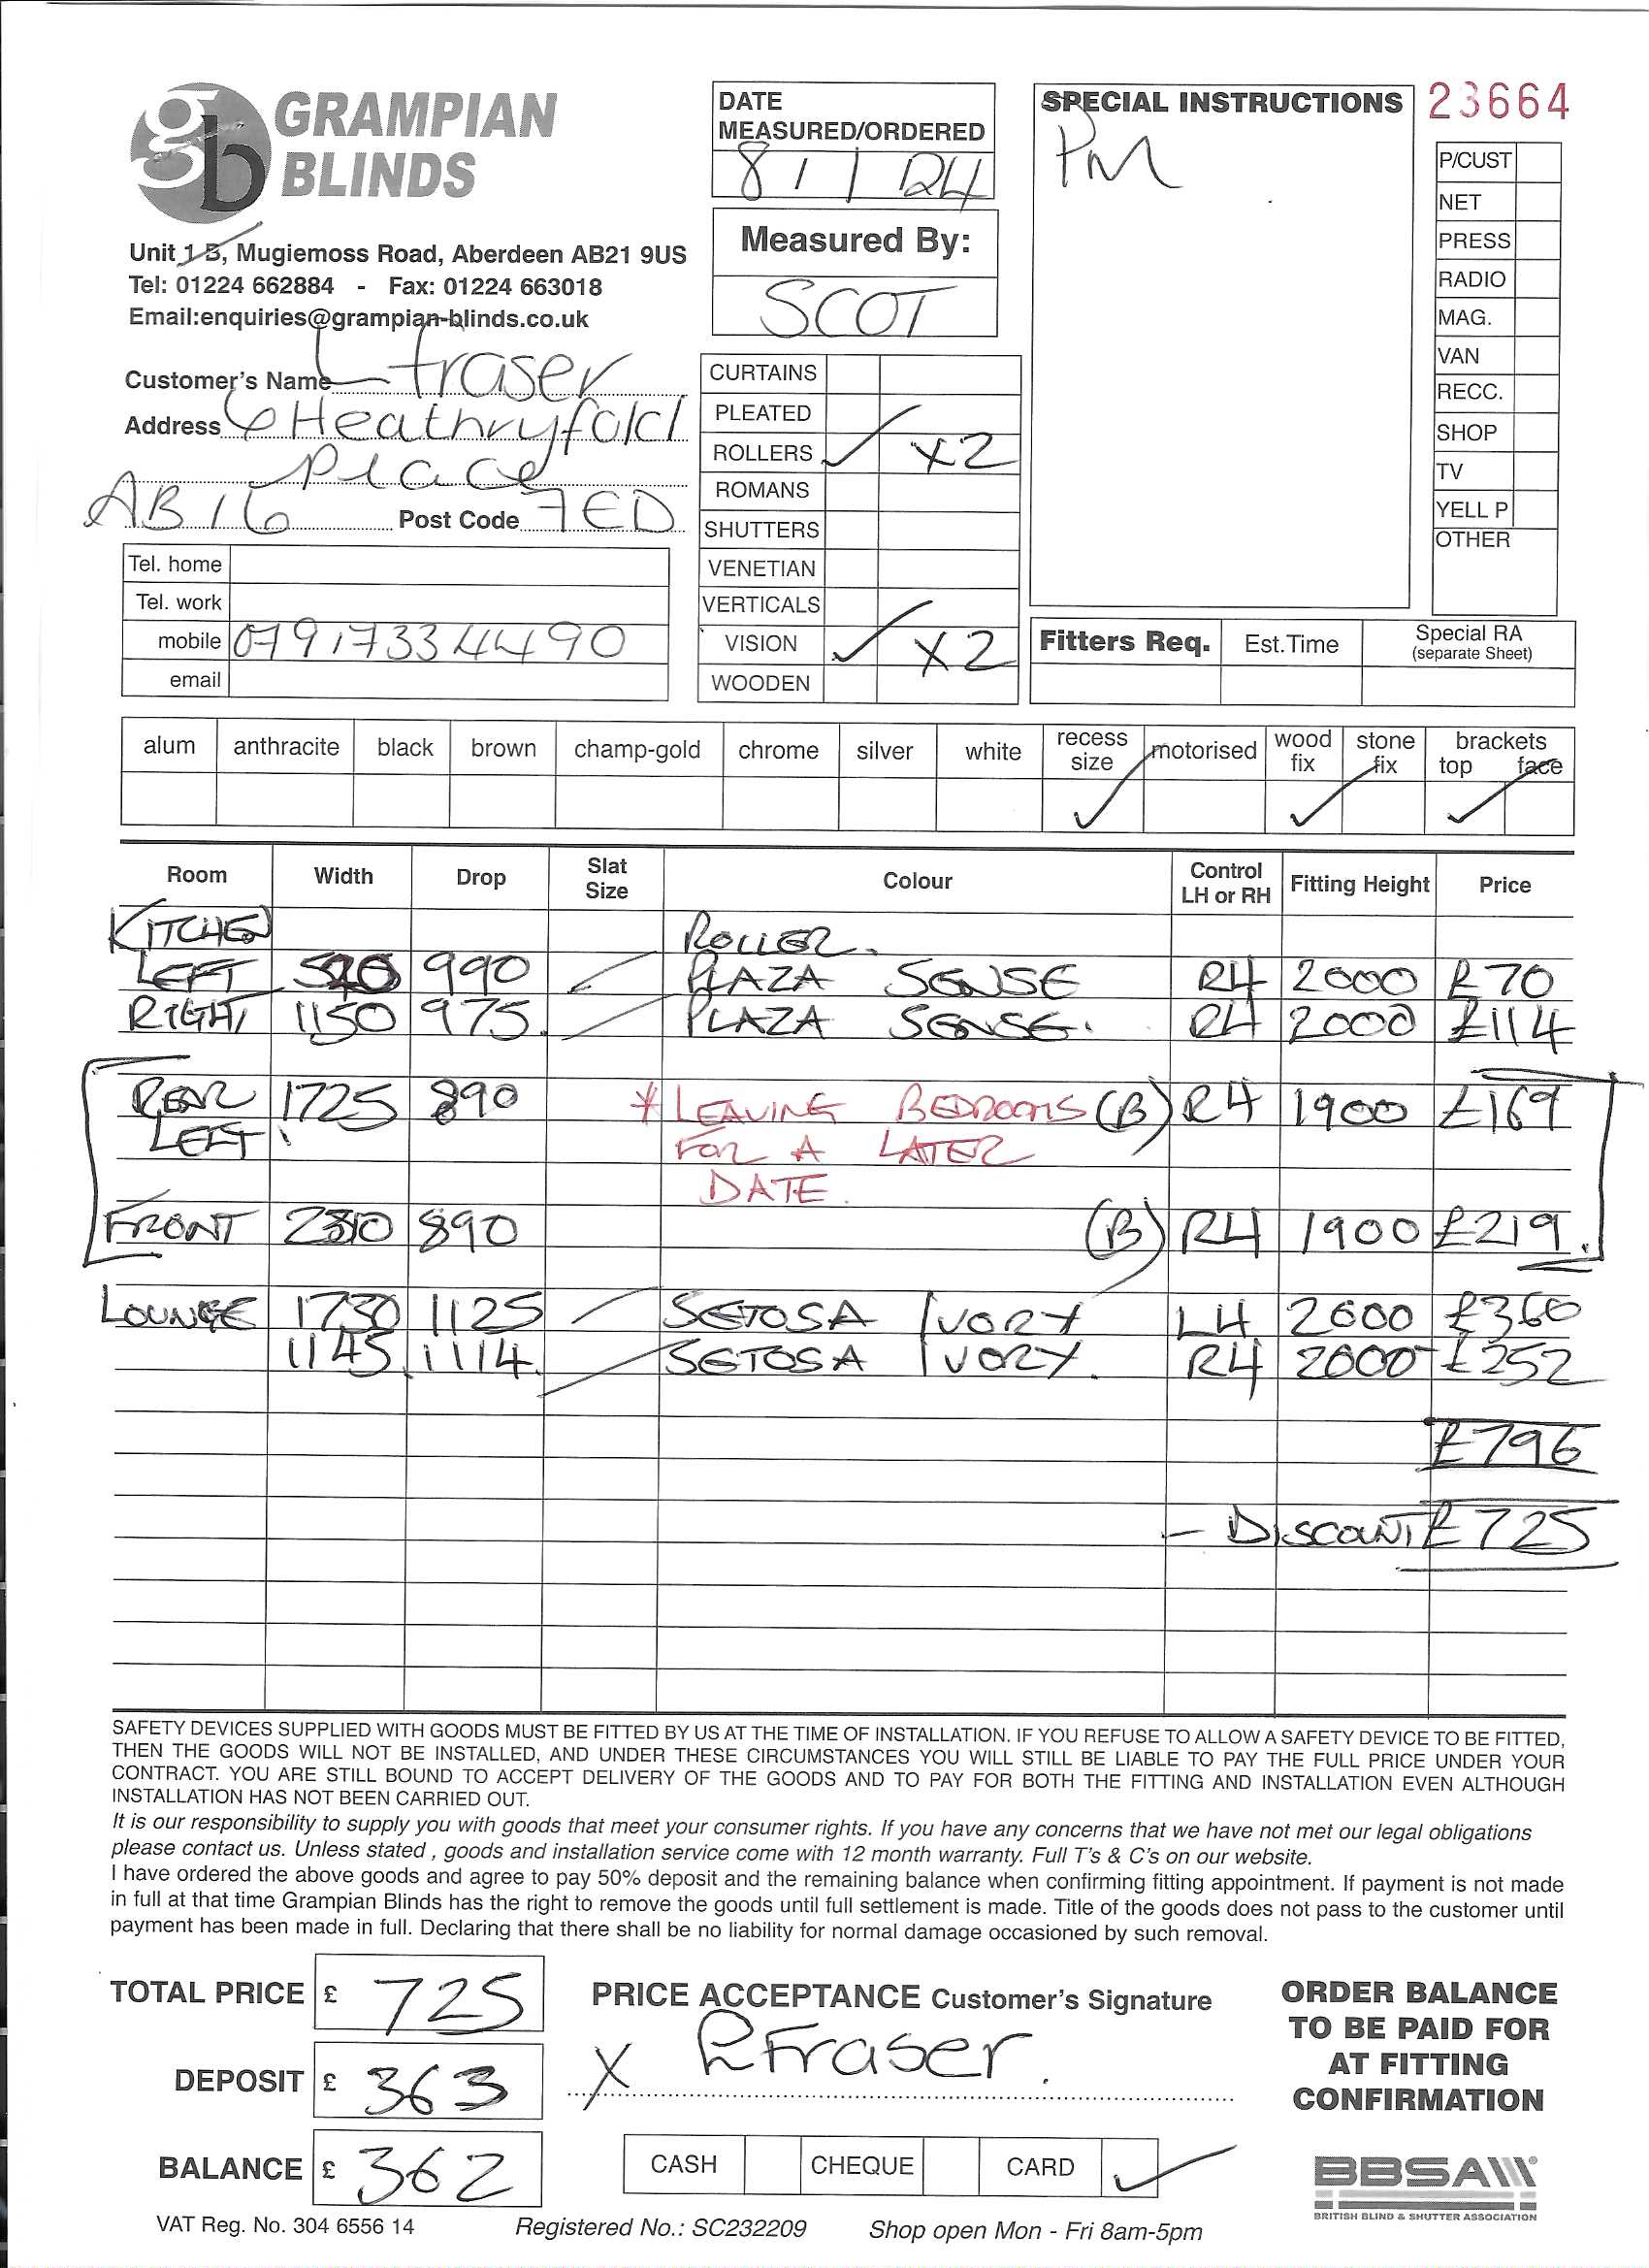 GRAMPIAN
BLINDS
Unit 1 B, Mugiemoss Road, Aberdeen AB21 9US
Tel: 01224 662884 - Fax: 01224 663018
Email:enquiries@grampian-blinds.co.uk
Customer's Name L Fraser
Address 6 Heathryfold
Place
AB16 Post Code 7ED
Tel. home
Tel. work
mobile 07917334490
email
DATE
MEASURED/ORDERED
8 / 1 / 24
Measured By:
SCOT
CURTAINS
PLEATED
ROLLERS ✓ x2
ROMANS
SHUTTERS
VENETIAN
VERTICALS
VISION ✓ x2
WOODEN
SPECIAL INSTRUCTIONS
PM
23664
P/CUST
NET
PRESS
RADIO
MAG.
VAN
RECC.
SHOP
TV
YELL P
OTHER
Fitters Req. Est.Time Special RA
(separate Sheet)
alum anthracite black brown champ-gold chrome silver white recess size motorised wood fix stone fix brackets top face
✓ ✓ ✓
Room Width Drop Slat Size Colour Control LH or RH Fitting Height Price
KITCHEN ROLLER.
LEFT 990 PLAZA SENSE RH 2000 £70
RIGHT 1150 975. PLAZA SENSE. RH 2000 £114
REAR 1725 890 * LEAVING BEDROOMS (B) RH 1900 £169
LEFT FOR A LATER
DATE.
FRONT 2310 890 (B) RH 1900 £219.
LOUNGE 1730 1125 SETOSA IVORY LH 2000 £360
1145 1114. SETOSA IVORY. RH 2000 £252
£796
- DISCOUNT £725
SAFETY DEVICES SUPPLIED WITH GOODS MUST BE FITTED BY US AT THE TIME OF INSTALLATION. IF YOU REFUSE TO ALLOW A SAFETY DEVICE TO BE FITTED,
THEN THE GOODS WILL NOT BE INSTALLED, AND UNDER THESE CIRCUMSTANCES YOU WILL STILL BE LIABLE TO PAY THE FULL PRICE UNDER YOUR
CONTRACT. YOU ARE STILL BOUND TO ACCEPT DELIVERY OF THE GOODS AND TO PAY FOR BOTH THE FITTING AND INSTALLATION EVEN ALTHOUGH
INSTALLATION HAS NOT BEEN CARRIED OUT.
It is our responsibility to supply you with goods that meet your consumer rights. If you have any concerns that we have not met our legal obligations
please contact us. Unless stated , goods and installation service come with 12 month warranty. Full T's & C's on our website.
I have ordered the above goods and agree to pay 50% deposit and the remaining balance when confirming fitting appointment. If payment is not made
in full at that time Grampian Blinds has the right to remove the goods until full settlement is made. Title of the goods does not pass to the customer until
payment has been made in full. Declaring that there shall be no liability for normal damage occasioned by such removal.
TOTAL PRICE £ 725
DEPOSIT £ 363
BALANCE £ 362
PRICE ACCEPTANCE Customer's Signature
X L Fraser.
CASH CHEQUE CARD ✓
ORDER BALANCE
TO BE PAID FOR
AT FITTING
CONFIRMATION
BBSA
BRITISH BLIND & SHUTTER ASSOCIATION
VAT Reg. No. 304 6556 14 Registered No.: SC232209 Shop open Mon - Fri 8am-5pm